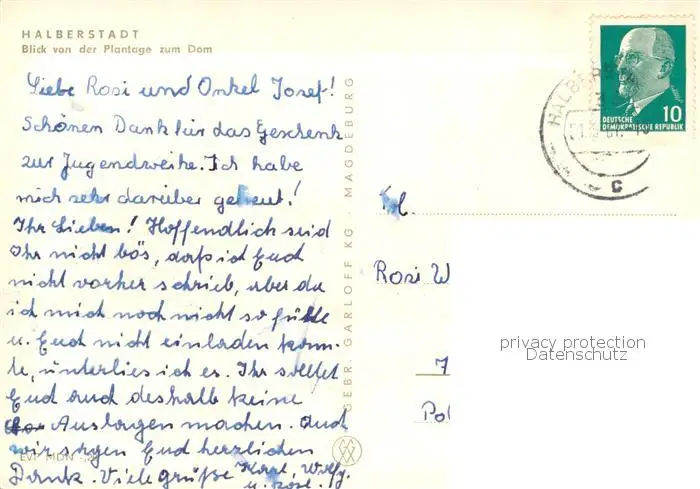 HALBERSTADT
Blick von der Plantage zum Dom
Liebe Rosi und Onkel Josef!
Schönen Dank für das Geschenk
zur Jugendweihe. Ich habe
mich sehr darüber gefreut!
Ihr Lieben! Hoffendlich seid
Ihr nicht bös, daß ich Euch
nicht vorher schrieb, aber da
ich mich noch nicht so fühlte
u. Euch nicht einladen konn-
te, unterlies ich es. Ihr solltet
Euch auch deshalb keine
Auslagen machen. Auch
wir sagen Euch herzlichen
Dank. Viele Grüße Horst, Wolfg.
u.
EVP MDN
GEBR. GARLOFF KG · MAGDEBURG
10
DEUTSCHE
DEMOKRATISCHE REPUBLIK
HALBERSTA
c
Frl.
Rosi W
7
Pol
privacy protection
Datenschutz